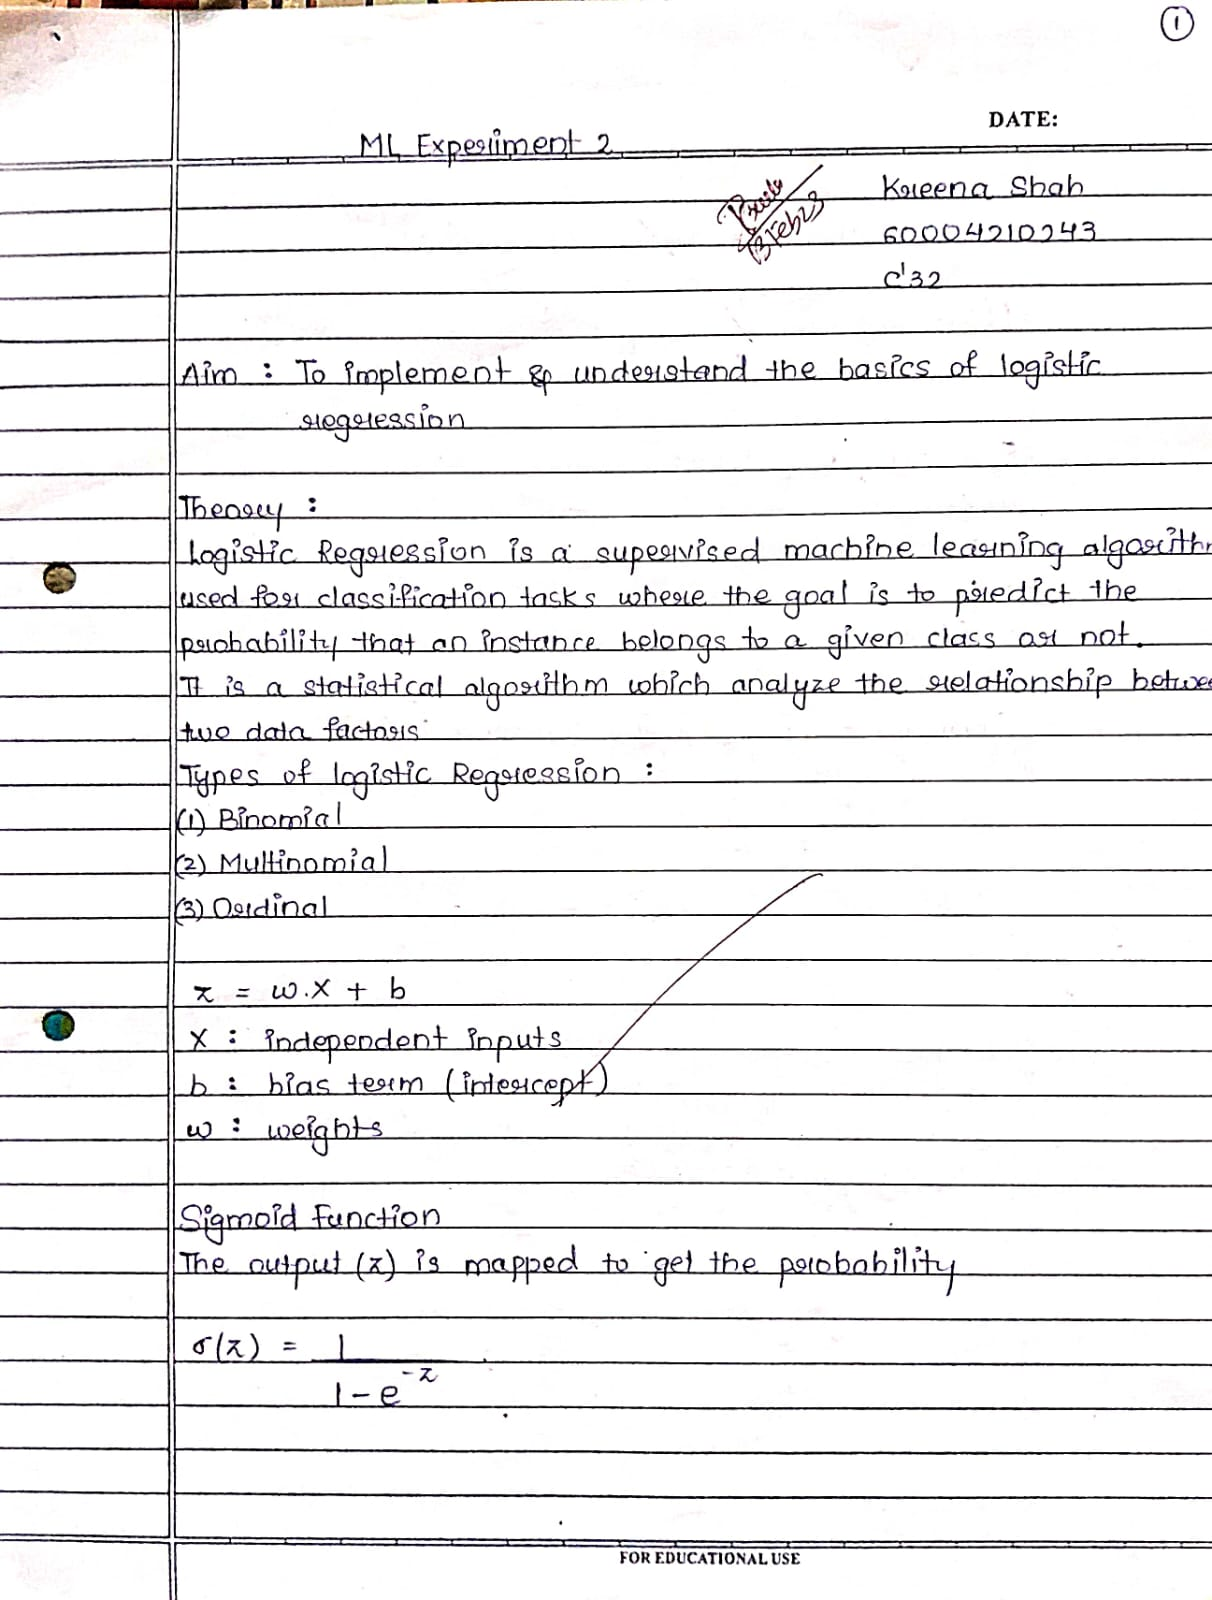 1
DATE:
ML Experiment 2
Kreena Shah
60004210243
C'32
Aim : To implement & understand the basics of logistic
regression
Theory :
Logistic Regression is a supervised machine learning algorithm
used for classification tasks where the goal is to predict the
probability that an instance belongs to a given class or not.
It is a statistical algorithm which analyze the relationship betwee
two data factors
Types of logistic Regression :
(1) Binomial
(2) Multinomial
(3) Ordinal
z = w.x + b
x : independent inputs
b : bias term (intercept)
w : weights
Sigmoid Function
The output (z) is mapped to get the probability
σ(z) = 1
1 - e^-z
FOR EDUCATIONAL USE